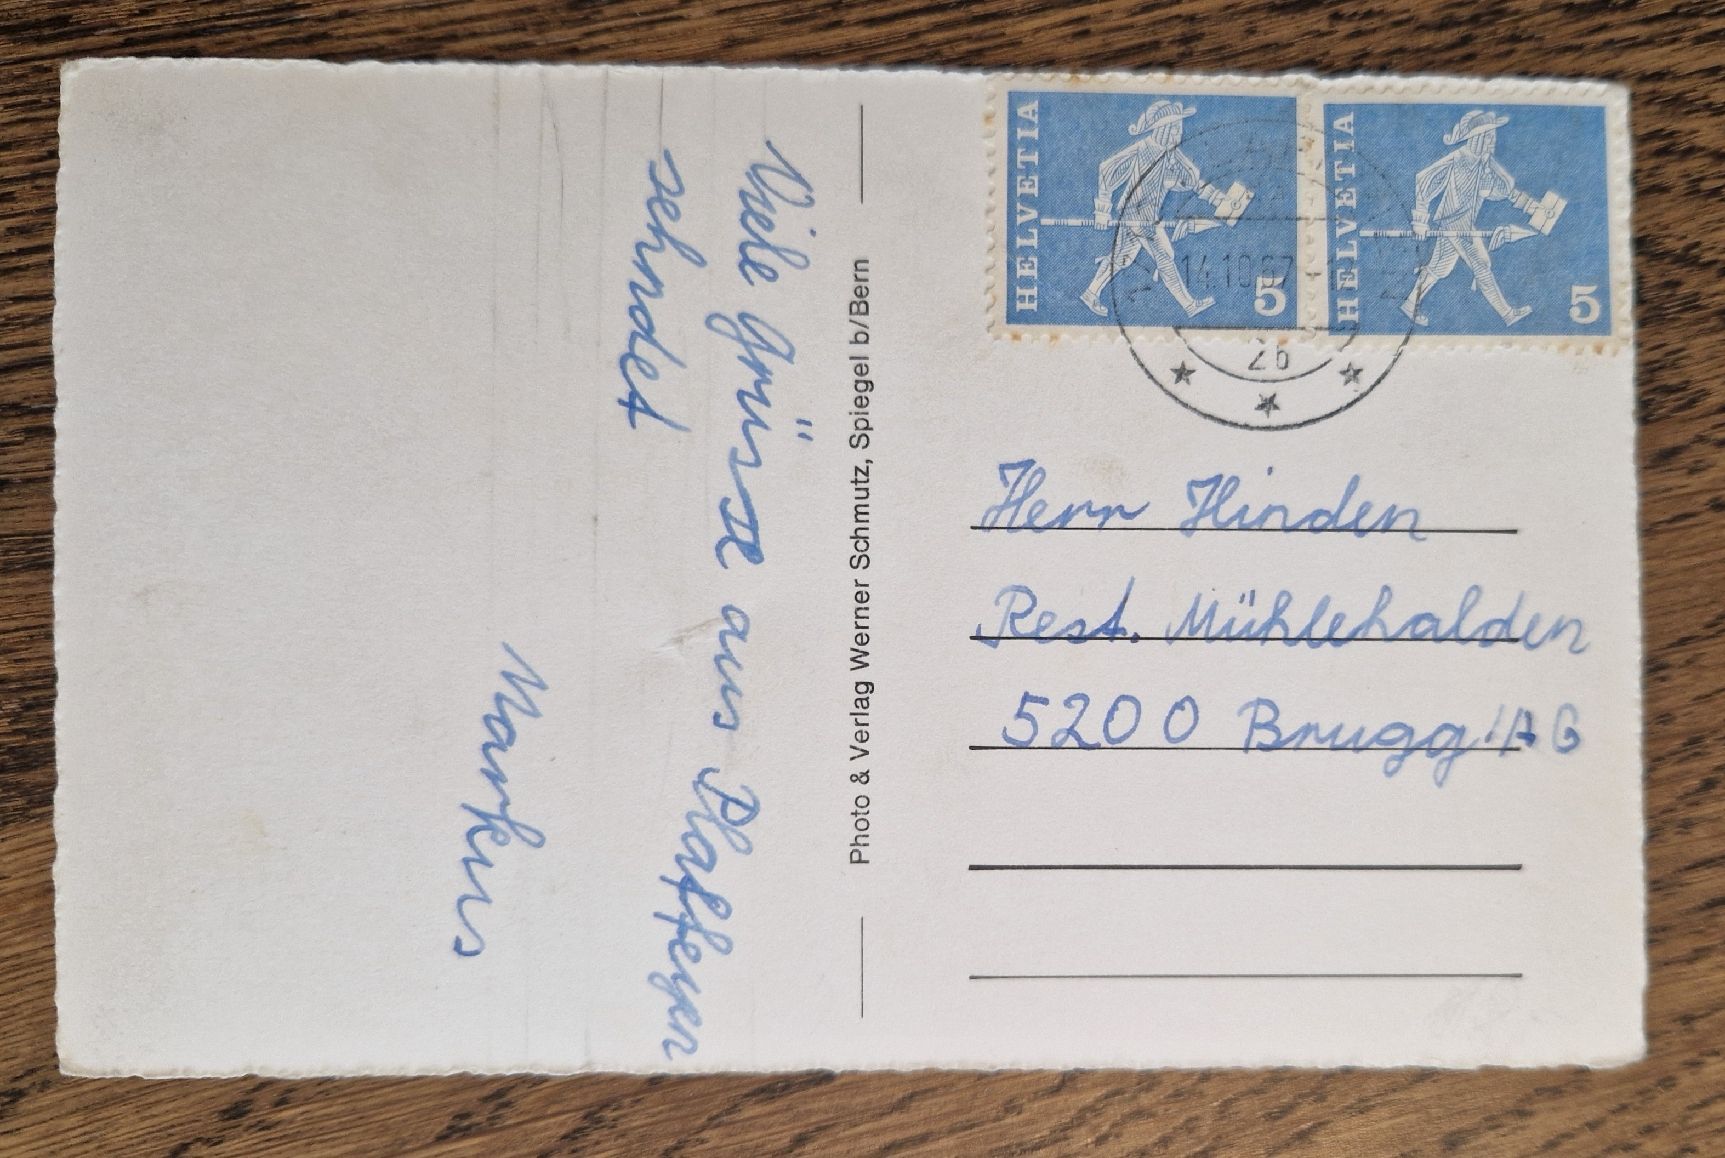 Viele Grüsse aus Plaffeyen
sehndet
Markus
Photo & Verlag Werner Schmutz, Spiegel b/Bern
HELVETIA
5
HELVETIA
5
14.10.67
26
Herr Hinden
Rest. Mühlehalden
5200 Brugg/AG